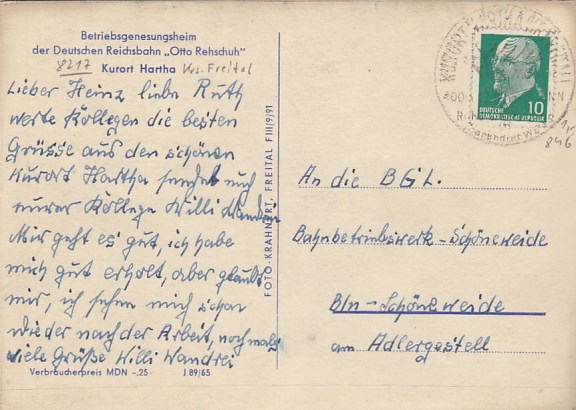 Betriebsgenesungsheim
der Deutschen Reichsbahn „Otto Rehschuh"
8217 Kurort Hartha Krs. Freital
Lieber Heinz liebe Ruth
werte Kollegen die besten
Grüsse aus den schönen
Kurort Hartha sendet euch
eurer Kollege Willi Wandrei
Mir geht es gut, ich habe
mich gut erholt, aber glaubt
mir, ich sehne mich schon
wieder nach der Arbeit, nochmals
viele Grüße Willi Wandrei
Verbraucherpreis MDN -,25 J 89/65
FOTO-KRAHNERT, FREITAL F III/9/91
KURORT HARTHA
DEUTSCHE
DEMOKRATISCHE REPUBLIK
10
846
An die BGL.
Bahnbetriebswerk-Schöneweide
Bln-Schöneweide
am Adlergestell